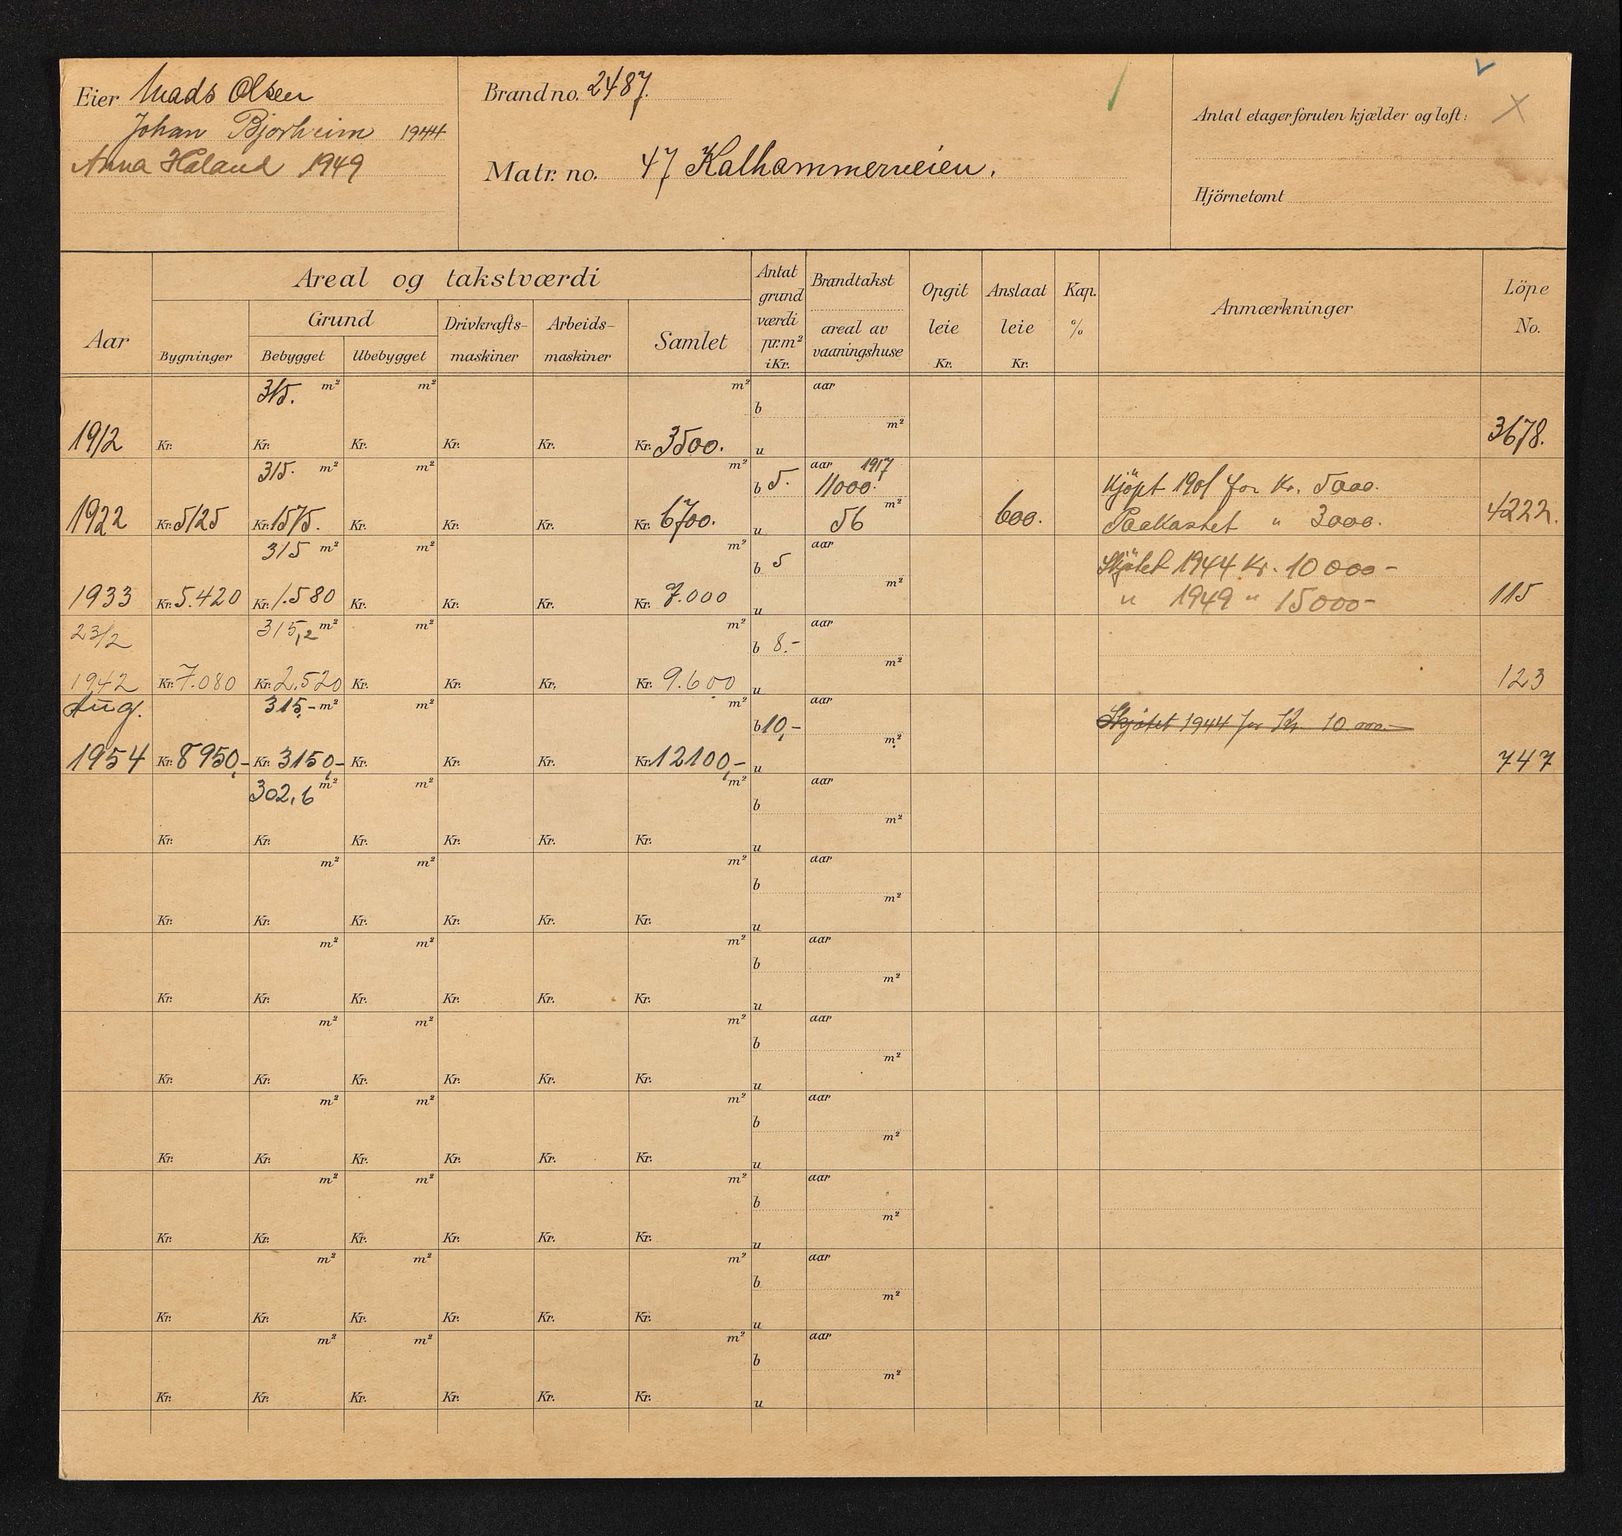 Eier Mads Olsen
Johan Bjorheim 1944
Anna Haland 1949
Brand no. 2487.
Matr. no. 47 Kalhammerveien.
Antal etager foruten kjælder og loft: X
Hjörnetomt
Aar
Areal og takstværdi
Bygninger
Grund
Bebygget
Ubebygget
Drivkrafts-
maskiner
Arbeids-
maskiner
Samlet
Antat
grund
værdi
pr.m²
i Kr.
Brandtakst
areal av
vaaningshuse
Opgit
leie
Kr.
Anslaat
leie
Kr.
Kap.
%
Anmærkninger
Löpe
No.
315. m² m² m² aar
b
m²
1912 Kr. Kr. Kr. Kr. Kr. Kr. 3500. u 3678.
315. m² m² m² aar 1917
b 5. 11000. Kjöpt 1901 for Kr. 5000.
m²
1922 Kr. 5125 Kr. 1575. Kr. Kr. Kr. Kr. 6700. u 56 600. Paakostet " 3000. 4222.
315 m² m² m² aar
b 5 Skjötet 1944 Kr. 10000-
m²
1933 Kr. 5.420 Kr. 1.580 Kr. Kr. Kr. Kr. 7.000 u " 1949 " 15000- 115
23/2 315,2 m² m² m² aar
b 8.-
m²
1942 Kr. 7.080 Kr. 2.520 Kr. Kr. Kr. Kr. 9.600 u 123
Aug. 315,- m² m² m² aar
b 10,- Skjötet 1944 for Kr 10.000.-
m²
1954 Kr. 8950,- Kr. 3150,- Kr. Kr. Kr. Kr. 12100,- u 747
302.6 m² m² m² aar
b
m²
Kr. Kr. Kr. Kr. Kr. Kr. u
m² m² m² aar
b
m²
Kr. Kr. Kr. Kr. Kr. Kr. u
m² m² m² aar
b
m²
Kr. Kr. Kr. Kr. Kr. Kr. u
m² m² m² aar
b
m²
Kr. Kr. Kr. Kr. Kr. Kr. u
m² m² m² aar
b
m²
Kr. Kr. Kr. Kr. Kr. Kr. u
m² m² m² aar
b
m²
Kr. Kr. Kr. Kr. Kr. Kr. u
m² m² m² aar
b
m²
Kr. Kr. Kr. Kr. Kr. Kr. u
m² m² m² aar
b
m²
Kr. Kr. Kr. Kr. Kr. Kr. u